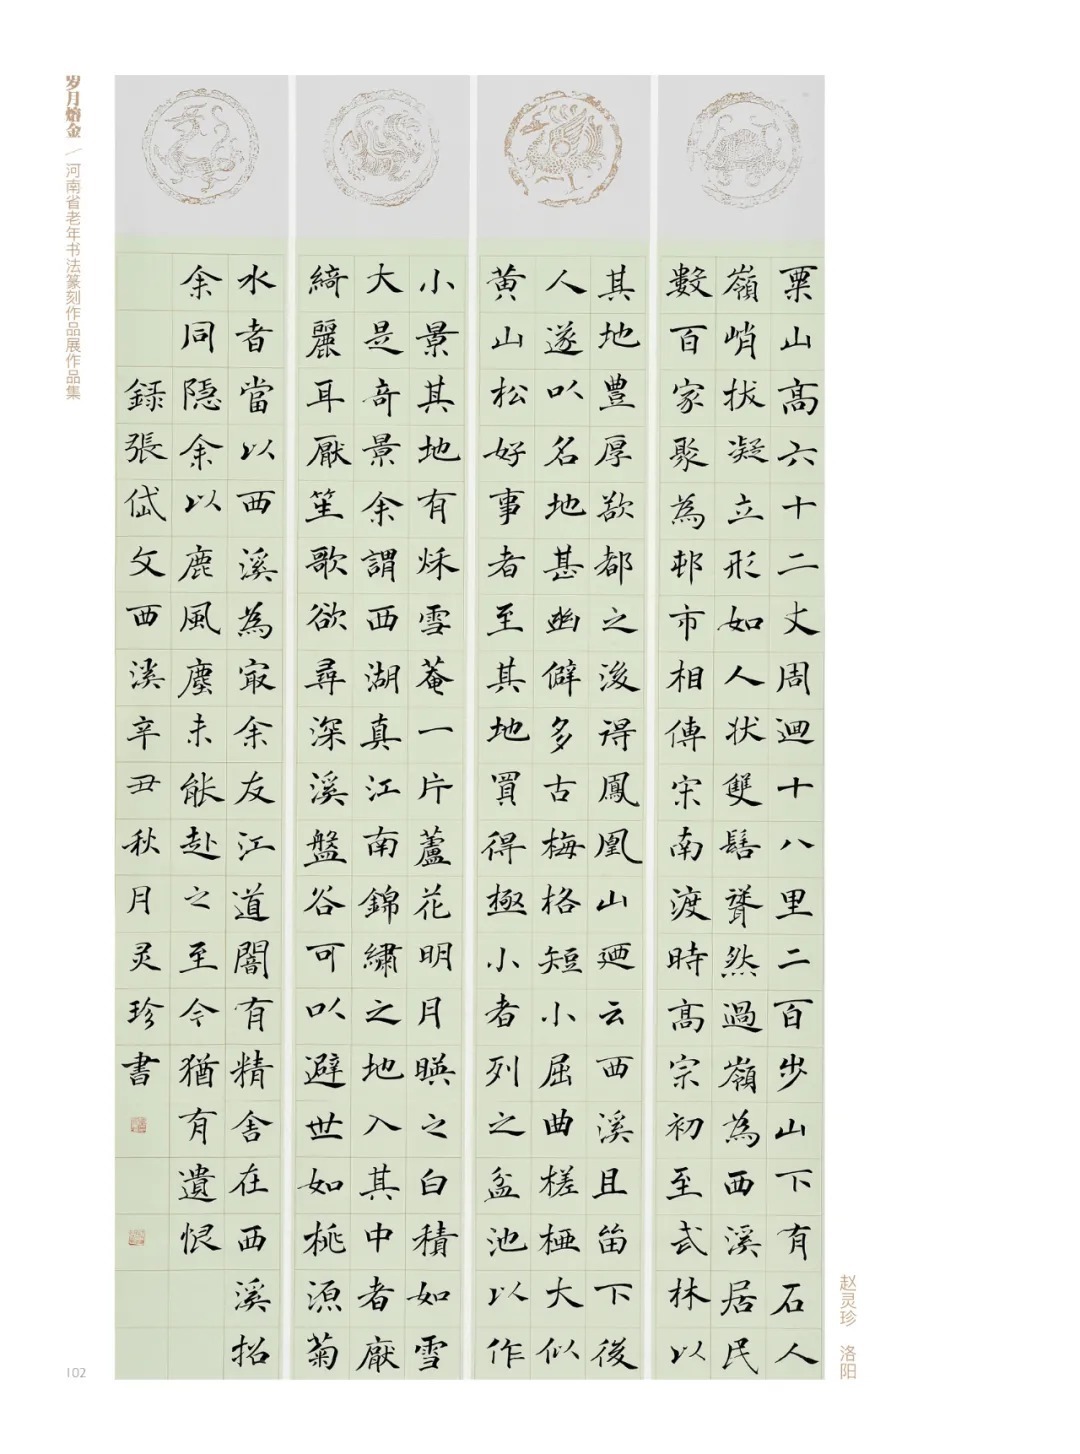 岁月熔金／河南省老年书法篆刻作品展作品集
粟山高六十二丈周迴十八里二百步山下有石人
嶺峭拔凝立形如人状雙髻聳然過嶺為西溪居民
數百家聚為邨市相傳宋南渡時高宗初至武林以
其地豊厚欲都之後得鳳凰山廼云西溪且留下後
人遂以名地甚幽僻多古梅格短小屈曲槎桠大似
黄山松好事者至其地買得極小者列之盆池以作
小景其地有秌雪菴一片蘆花明月暎之白積如雪
大是奇景余謂西湖真江南錦繡之地入其中者厭
綺麗耳厭笙歌欲尋深溪盤谷可以避世如桃源菊
水者當以西溪為㝡余友江道闇有精舍在西溪招
余同隱余以鹿風塵未能赴之至今猶有遺恨
録張岱文西溪辛丑秋月灵珍書
赵灵珍 洛阳
102